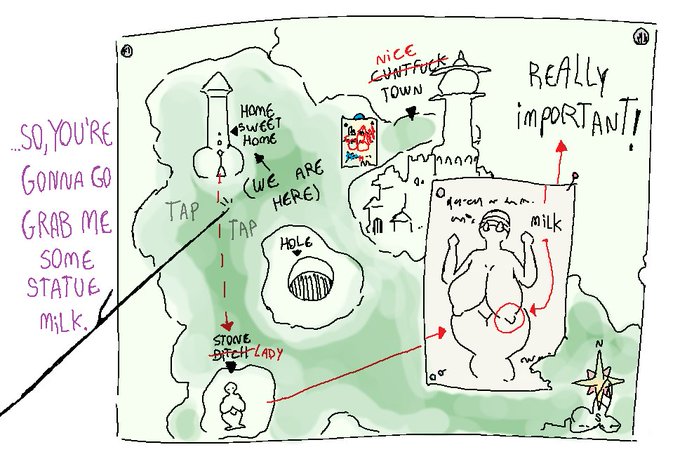 ...SO, YOU'RE
GONNA GO
GRAB ME
SOME
STATUE
MiLK.
HOME
SWEET
HOME
(WE ARE
HERE)
TAP
TAP
HOLE
STONE
BITCH LADY
NiCE
CUNTFUCK
TOWN
REALLY
iMPORTANT!
MiLK
N
S